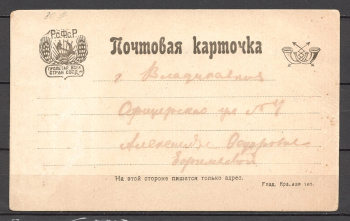 Р.С.Ф.С.Р.
ПРОЛЕТАРИИ ВСЕХ
СТРАН СОЕД.
Почтовая карточка
г Владикавказ
Офицерская ул №
Александре Федоровне
На этой стороне пишется только адрес.